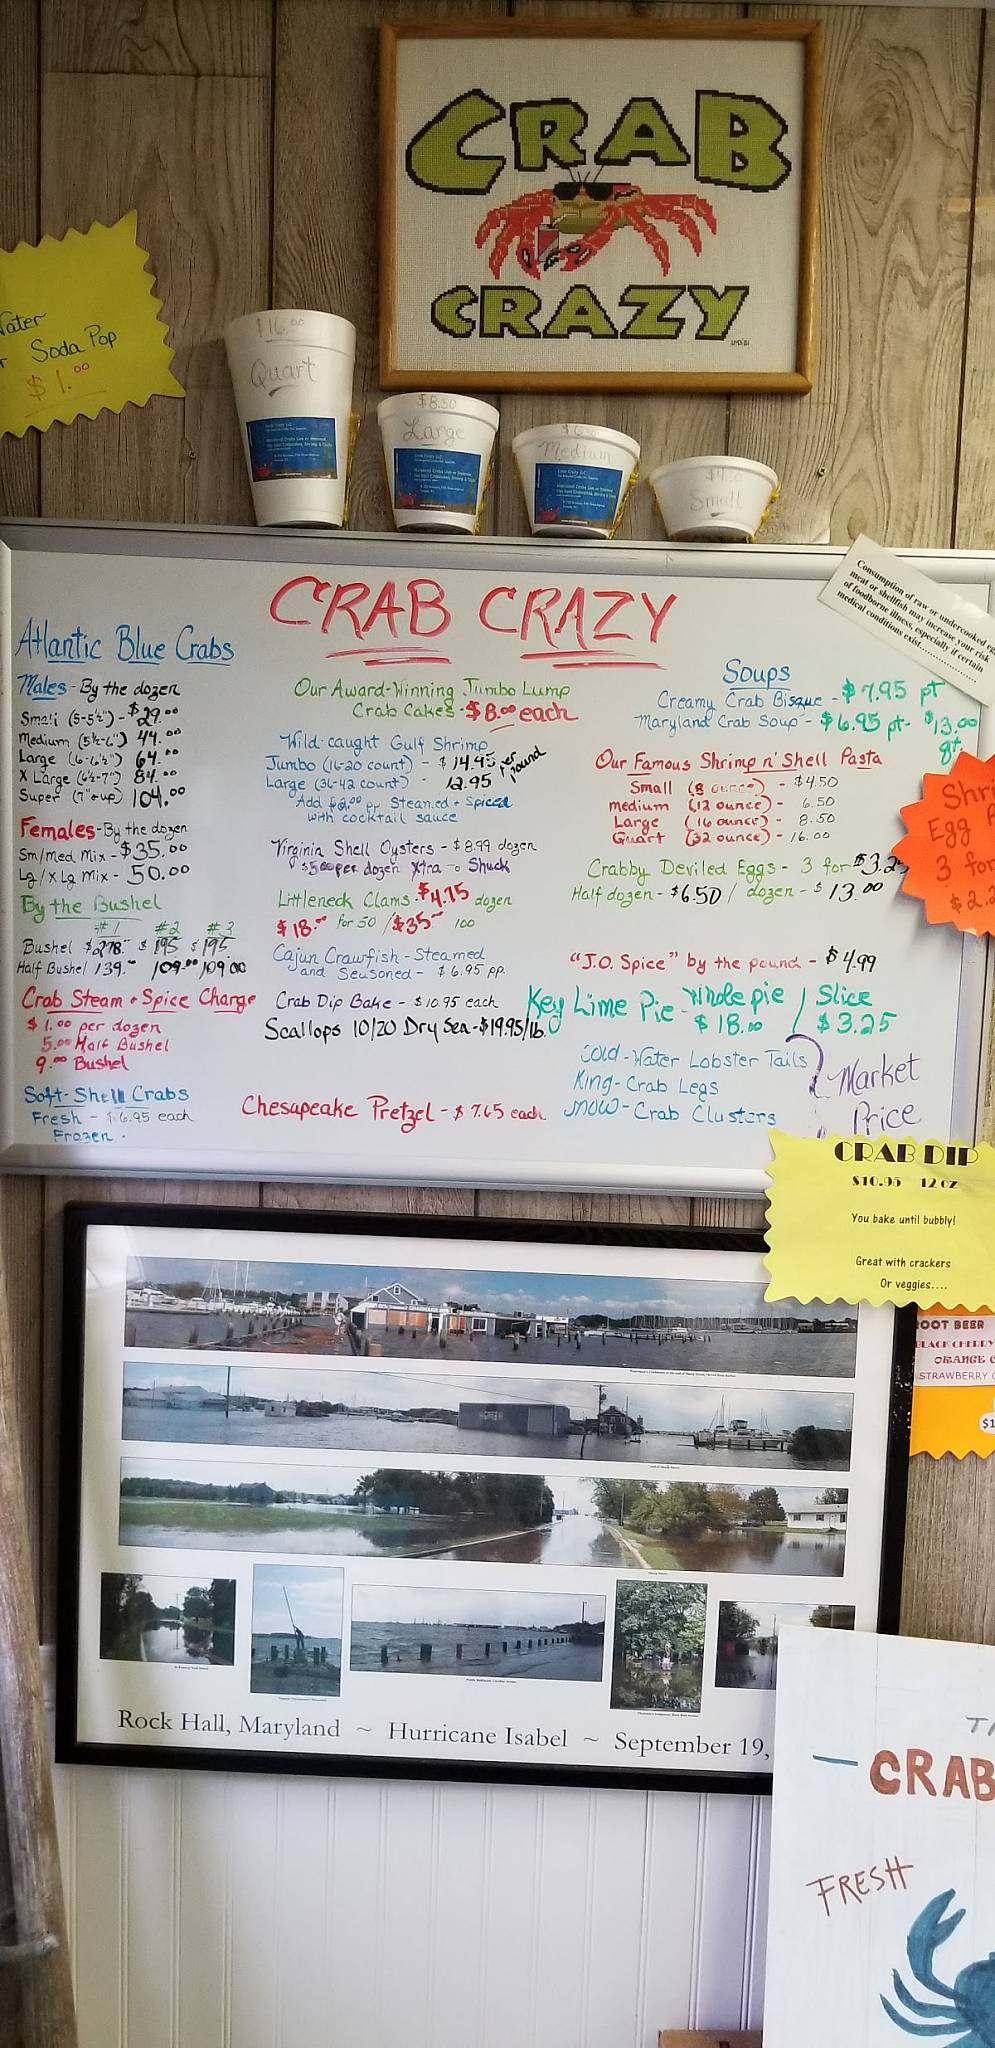 CRAB
CRAZY
Water
Soda Pop
$1.00
$16.00
Quart
$8.50
Large
Medium
Small
CRAB CRAZY
Consumption of raw or undercooked
meat or shellfish may increase your risk
of foodborne illness, especially if certain
medical conditions exist
Atlantic Blue Crabs
Males - By the dozen
Small (5-5½") - $29.00
Medium (5½-6") 44.00
Large (6-6½") 64.00
X Large (6½-7") 84.00
Super (7" + up) 104.00
Females - By the dozen
Sm/Med Mix - $35.00
Lg/XLg Mix - 50.00
By the Bushel
#1 #2 #3
Bushel $278.00 $195 $195.
Half Bushel 139.00 109.00 109.00
Crab Steam + Spice Charge
$1.00 per dozen
5.00 Half Bushel
9.00 Bushel
Soft-Shell Crabs
Fresh - $6.95 each
Frozen -
Our Award-Winning Jumbo Lump
Crab Cakes - $8.00 each
Wild-caught Gulf Shrimp
Jumbo (16-20 count) - $14.95 per pound
Large (36-42 count) - 12.95
Add $2.00 pp Steamed + Spiced
with cocktail sauce
Virginia Shell Oysters - $8.99 dozen
$5.00 per dozen Xtra to Shuck
Littleneck Clams - $4.75 dozen
$18.00 for 50 / $35 100
Cajun Crawfish - Steamed
and Seasoned - $6.95 pp.
Crab Dip Bake - $10.95 each
Scallops 10/20 Dry Sea - $19.95/lb.
Chesapeake Pretzel - $7.65 each
Soups
Creamy Crab Bisque - $7.95 pt
Maryland Crab Soup - $6.95 pt - $13.00
qt.
Our Famous Shrimp n' Shell Pasta
Small (8 ounce) - $4.50
medium (12 ounce) - 6.50
Large (16 ounce) - 8.50
Quart (32 ounce) - 16.00
Crabby Deviled Eggs - 3 for $3.25
Half dozen - $6.50 / dozen - $13.00
"J.O. Spice" by the pound - $4.99
Key Lime Pie - Whole pie / Slice
$18.00 / $3.25
Cold-Water Lobster Tails
King-Crab Legs
Snow-Crab Clusters
Market
Price
Egg
3 for
CRAB DIP
$10.95 12 oz
You bake until bubbly!
Great with crackers
Or veggies....
ROOT BEER
BLACK CHERRY
ORANGE C
STRAWBERRY
$1
Rock Hall, Maryland ~ Hurricane Isabel ~ September 19,
CRAB
FRESH